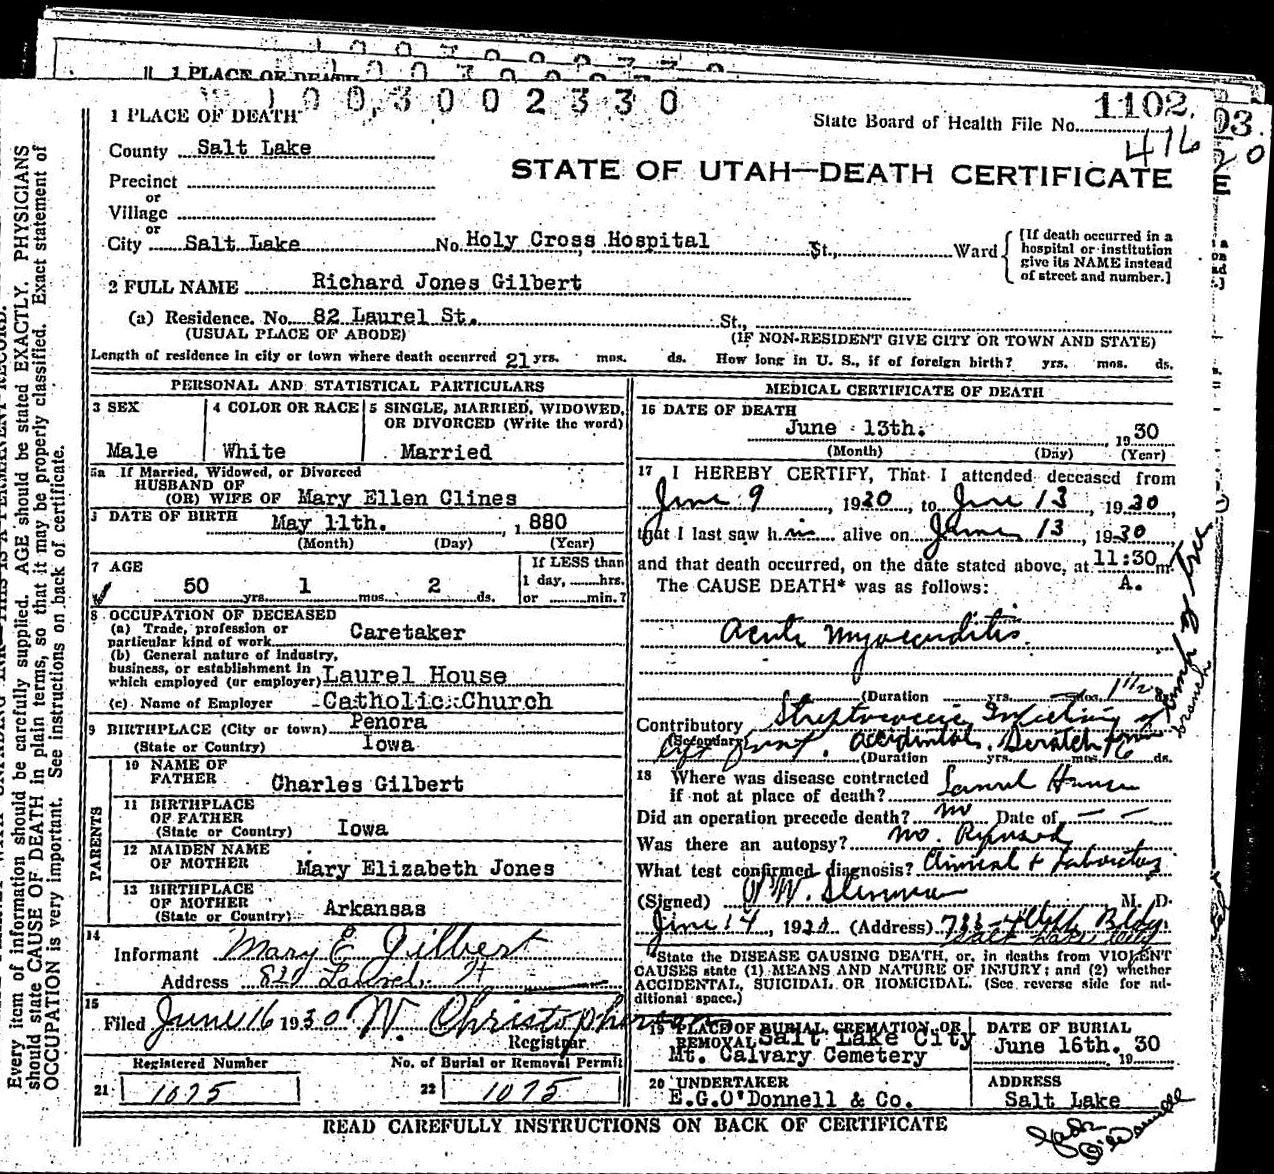 1 PLACE OF DEATH
1003002330
1102.
State Board of Health File No.
416
1 PLACE OF DEATH
County Salt Lake
STATE OF UTAH—DEATH CERTIFICATE
Precinct
or
Village
or
City Salt Lake No. Holy Cross Hospital St., Ward
[If death occurred in a hospital or institution give its NAME instead of street and number.]
2 FULL NAME Richard Jones Gilbert
(a) Residence. No. 82 Laurel St. St.,
(USUAL PLACE OF ABODE) (IF NON-RESIDENT GIVE CITY OR TOWN AND STATE)
Length of residence in city or town where death occurred 21 yrs. mos. ds. How long in U. S., if of foreign birth? yrs. mos. ds.
PERSONAL AND STATISTICAL PARTICULARS
3 SEX
Male
4 COLOR OR RACE
White
5 SINGLE, MARRIED, WIDOWED, OR DIVORCED (Write the word)
Married
5a If Married, Widowed, or Divorced
HUSBAND OF
(OR) WIFE OF Mary Ellen Clines
DATE OF BIRTH May 11th. , 1880
(Month) (Day) (Year)
7 AGE
50 yrs. 1 mos. 2 ds.
If LESS than
1 day, hrs.
or min.?
8 OCCUPATION OF DECEASED
(a) Trade, profession or
particular kind of work Caretaker
(b) General nature of Industry,
business, or establishment in
which employed (or employer) Laurel House
(c) Name of Employer Catholic Church
9 BIRTHPLACE (City or town) Penora
(State or Country) Iowa
PARENTS
10 NAME OF
FATHER Charles Gilbert
11 BIRTHPLACE
OF FATHER
(State or Country) Iowa
12 MAIDEN NAME
OF MOTHER Mary Elizabeth Jones
13 BIRTHPLACE
OF MOTHER
(State or Country) Arkansas
14
Informant Mary E Gilbert
Address 820 Laurel St
15
Filed June 16 1930 W. Christopherson
Registrar
Registered Number No. of Burial or Removal Permit
21 1075 22 1075
MEDICAL CERTIFICATE OF DEATH
16 DATE OF DEATH
June 13th. , 1930
(Month) (Day) (Year)
17 I HEREBY CERTIFY, That I attended deceased from
June 9 , 1930, to June 13 , 1930,
that I last saw him alive on June 13 , 1930
and that death occurred, on the date stated above, at 11:30 m.
A.
The CAUSE DEATH* was as follows:
Acute Myocarditis
(Duration yrs. mos. 1 1/2
Contributory Streptococcic Infection of
(Secondary) accidental. Scratch from
limb of tree
branch
(Duration yrs. mos. 6 ds.
18 Where was disease contracted
if not at place of death? Laurel House
Did an operation precede death? no Date of — —
Was there an autopsy? no. Refused
What test confirmed diagnosis? Clinical + Laboratory
(Signed) M. D.
June 14, 1930 (Address) Bldg.
Salt Lake City
*State the DISEASE CAUSING DEATH, or, in deaths from VIOLENT
CAUSES state (1) MEANS AND NATURE OF INJURY; and (2) whether
ACCIDENTAL, SUICIDAL OR HOMICIDAL. (See reverse side for ad-
ditional space.)
19 PLACE OF BURIAL, CREMATION, OR
REMOVAL Salt Lake City
Mt. Calvary Cemetery
DATE OF BURIAL
June 16th. 1930
20 UNDERTAKER
E.G.O'Donnell & Co.
ADDRESS
Salt Lake
READ CAREFULLY INSTRUCTIONS ON BACK OF CERTIFICATE
O'Donnell
Every item of information should be carefully supplied. AGE should be stated EXACTLY. PHYSICIANS
should state CAUSE OF DEATH in plain terms, so that it may be properly classified. Exact statement of
OCCUPATION is very important. See instructions on back of certificate.